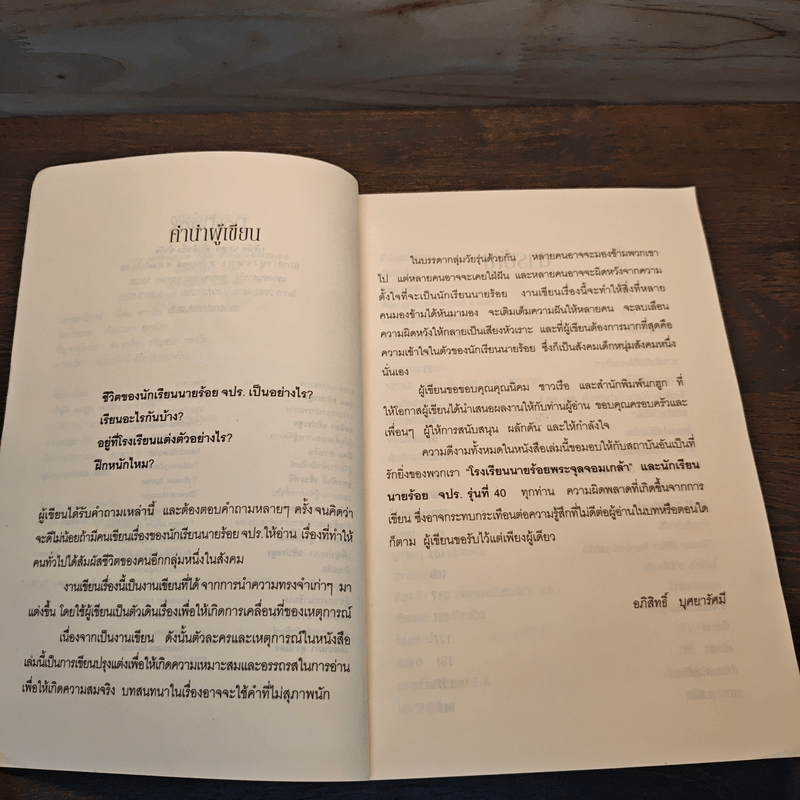 คำนำผู้เขียน
ชีวิตของนักเรียนนายร้อย จปร. เป็นอย่างไร?
เรียนอะไรกันบ้าง?
อยู่ที่โรงเรียนแต่งตัวอย่างไร?
ฝึกหนักไหม?
ผู้เขียนได้รับคำถามเหล่านี้ และต้องตอบคำถามหลายๆ ครั้ง จนคิดว่า
จะดีไม่น้อยถ้ามีคนเขียนเรื่องของนักเรียนนายร้อย จปร.ให้อ่าน เรื่องที่ทำให้
คนทั่วไปได้สัมผัสชีวิตของคนอีกกลุ่มหนึ่งในสังคม
งานเขียนเรื่องนี้เป็นงานเขียนที่ได้ จากการนำความทรงจำเก่าๆ มา
แต่งขึ้น โดยใช้ผู้เขียนเป็นตัวเดินเรื่องเพื่อให้เกิดการเคลื่อนที่ของเหตุการณ์
เนื่องจากเป็นงานเขียน ดังนั้นตัวละครและเหตุการณ์ในหนังสือ
เล่มนี้เป็นการเขียนปรุงแต่งเพื่อให้เกิดความเหมาะสมและอรรถรสในการอ่าน
เพื่อให้เกิดความสมจริง บทสนทนาในเรื่องอาจจะใช้คำที่ไม่สุภาพนัก
ในบรรดากลุ่มวัยรุ่นด้วยกัน หลายคนอาจจะมองข้ามพวกเขา
ไป แต่หลายคนอาจจะเคยใฝ่ฝัน และหลายคนอาจจะผิดหวังจากความ
ตั้งใจที่จะเป็นนักเรียนนายร้อย งานเขียนเรื่องนี้จะทำให้สิ่งที่หลาย
คนมองข้ามได้หันมามอง จะเติมเต็มความฝันให้หลายคน จะลบเลือน
ความผิดหวังให้กลายเป็นเสียงหัวเราะ และที่ผู้เขียนต้องการมากที่สุดคือ
ความเข้าใจในตัวของนักเรียนนายร้อย ซึ่งก็เป็นสังคมเด็กหนุ่มสังคมหนึ่ง
นั่นเอง
ผู้เขียนขอขอบคุณคุณนิคม ชาวเรือ และสำนักพิมพ์นกฮูก ที่
ให้โอกาสผู้เขียนได้นำเสนอผลงานให้กับท่านผู้อ่าน ขอบคุณครอบครัวและ
เพื่อนๆ ผู้ให้การสนับสนุน ผลักดัน และให้กำลังใจ
ความดีงามทั้งหมดในหนังสือเล่มนี้ขอมอบให้กับสถาบันอันเป็นที่
รักยิ่งของพวกเรา "โรงเรียนนายร้อยพระจุลจอมเกล้า" และนักเรียน
นายร้อย จปร. รุ่นที่ 40 ทุกท่าน ความผิดพลาดที่เกิดขึ้นจากการ
เขียน ซึ่งอาจกระทบกระเทือนต่อความรู้สึกที่ไม่ดีต่อผู้อ่านในบทหรือตอนใด
ก็ตาม ผู้เขียนขอรับไว้แต่เพียงผู้เดียว
อภิสิทธิ์ บุศยารัศมี